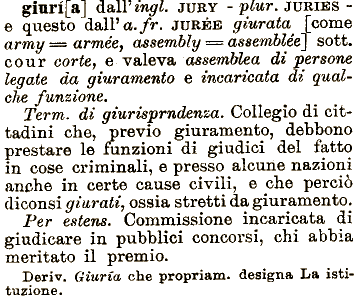 giurì[a] dall'ingl. JURY - plur. JURIES -
e questo dall'a. fr. JURÉE giurata [come
army = armée, assembly = assemblée] sott.
cour corte, e valeva assemblea di persone
legate da giuramento e incaricata di qual-
che funzione.
Term. di giurisprndenza. Collegio di cit-
tadini che, previo giuramento, debbono
prestare le funzioni di giudici del fatto
in cose criminali, e presso alcune nazioni
anche in certe cause civili, e che perciò
diconsi giurati, ossia stretti da giuramento.
Per estens. Commissione incaricata di
giudicare in pubblici concorsi, chi abbia
meritato il premio.
Deriv. Giuria che propriam. designa La isti-
tuzione.